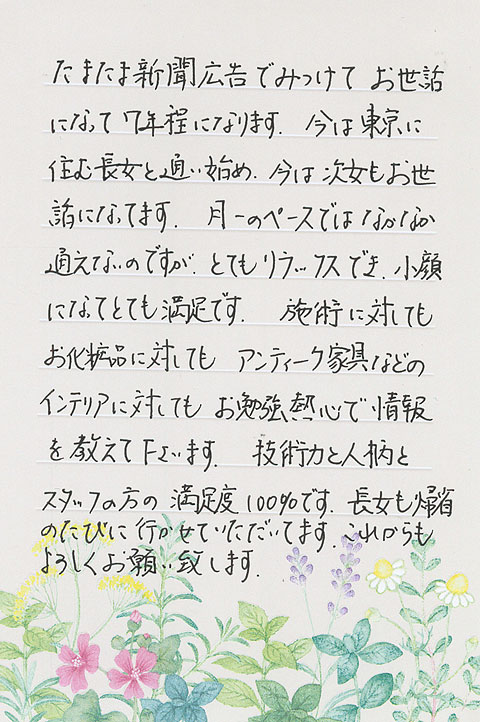 たまたま新聞広告でみつけて お世話
になって 7年程になります. 今は東京に
住む長女と通い始め. 今は次女もお世
話になってます. 月一のペースではなかなか
通えないのですが. とてもリラックスでき. 小顔
になってとても満足です. 施術に対しても
お化粧品に対しても アンティーク家具などの
インテリアに対しても お勉強熱心で情報
を教えて下さいます. 技術力と人柄と
スタッフの方の 満足度100%です. 長女も帰省
のたびに行かせていただいてます. これからも
よろしくお願い致します.